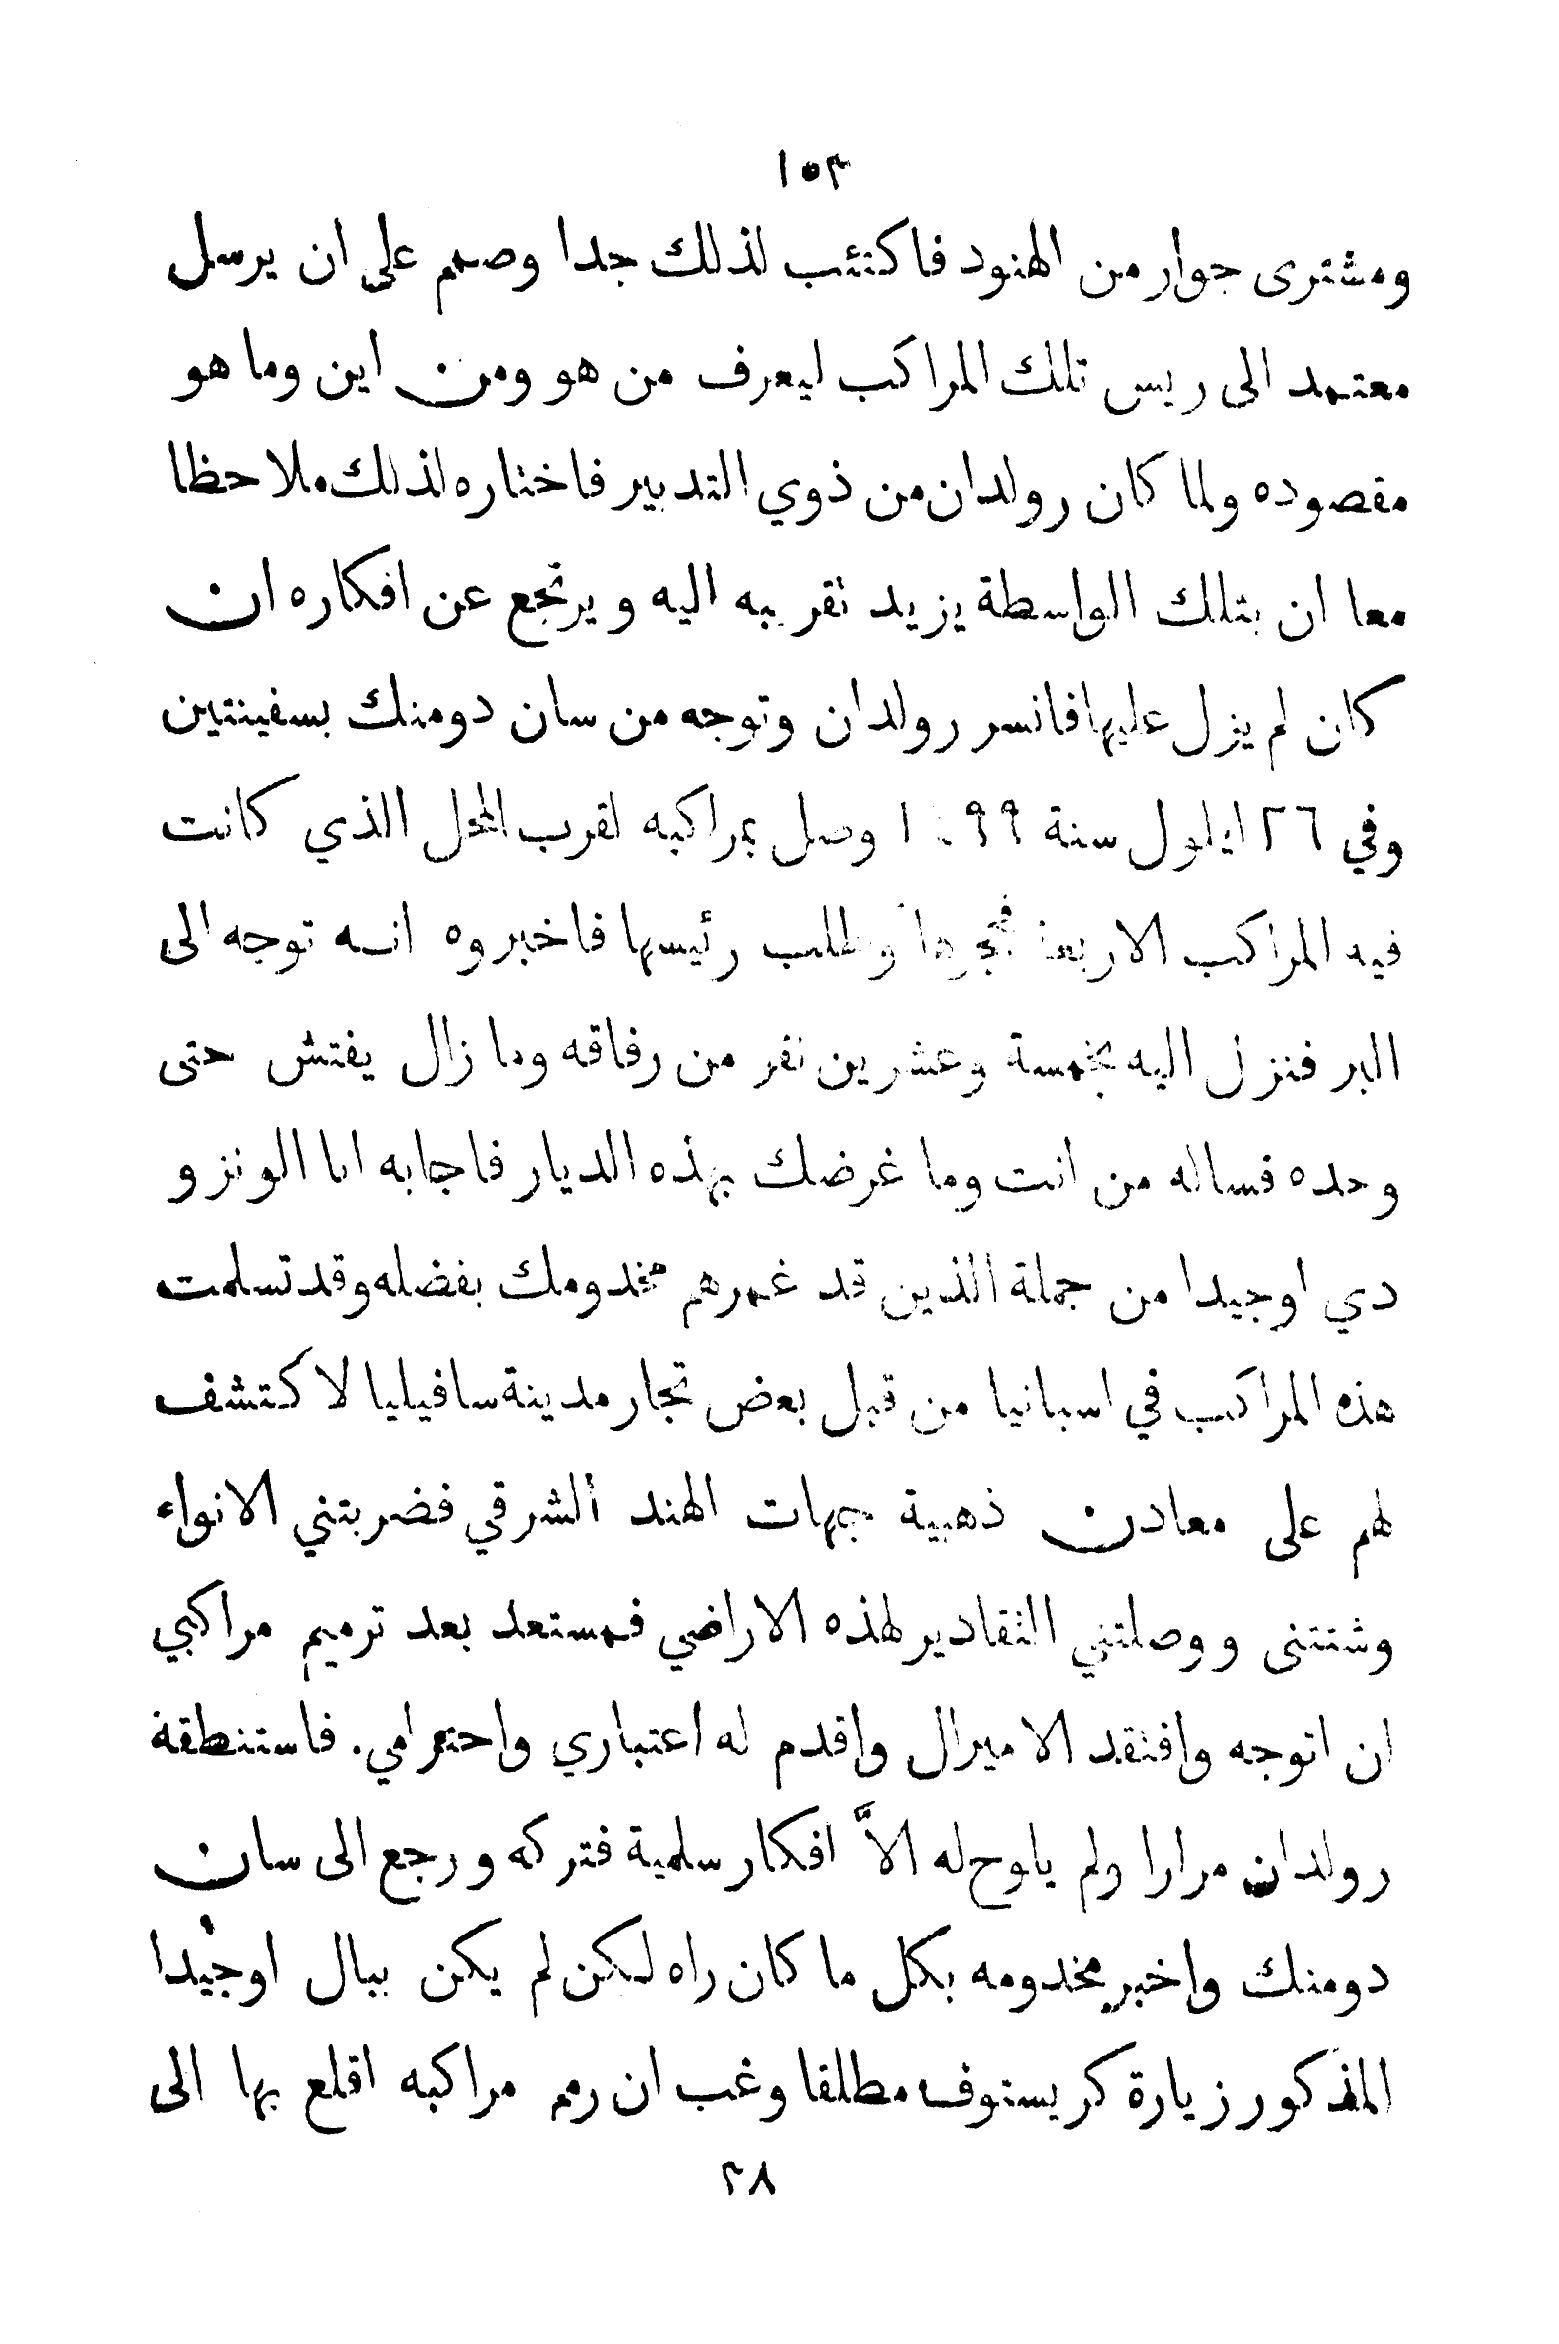 ١٥٣
ومشترى جوار من الهنود فاكتئب لذلك جدا وصمم على ان يرسل
معتمد الى ريس تلك المراكب ليعرف من هو ومن اين وما هو
مقصوده ولما كان رولدان من ذوي التدبير فاختاره لذلك ملاحظا
معا ان بتلك الواسطة يزيد تقريبه اليه ويرتجع عن افكاره ان
كان لم يزل عليها فانسر رولدان وتوجه من سان دومنك بسفينتين
وفي ٢٦ ايلول سنة ١٤٩٩ وصل بمراكبه لقرب المحل الذي كانت
فيه المراكب الاربعة فحجرها وطلب رئيسها فاخبروه انه توجه الى
البر فنزل اليه بخمسة وعشرين نفر من رفاقه وما زال يفتش حتى
وحده فساله من انت وما غرضك بهذه الديار فاجابه انا الونزو
دي اوجيدا من جملة الذين قد غمرهم مخدومك بفضله وقد تسلمت
هذه المراكب في اسبانيا من قبل بعض تجار مدينة سافيليا لاكتشف
لهم على معادن ذهبية جهات الهند الشرقي فضربتني الانواء
وشتتنى ووصلتني التقادير لهذه الاراضي فمستعد بعد ترميم مراكبي
ان اتوجه وافتقد الاميرال واقدم له اعتباري واحترامي. فاستنطقة
رولدان مرارا ولم ياوح له الاَّ افكار سلمية فتركه ورجع الى سان
دومنك واخبر مخدومه بكل ما كان راه لكن لم يكن ببال اوجيدا
المذكور زيارة كريستوف مطلقا وغب ان رمم مراكبه اقلع بها الى
٢٨